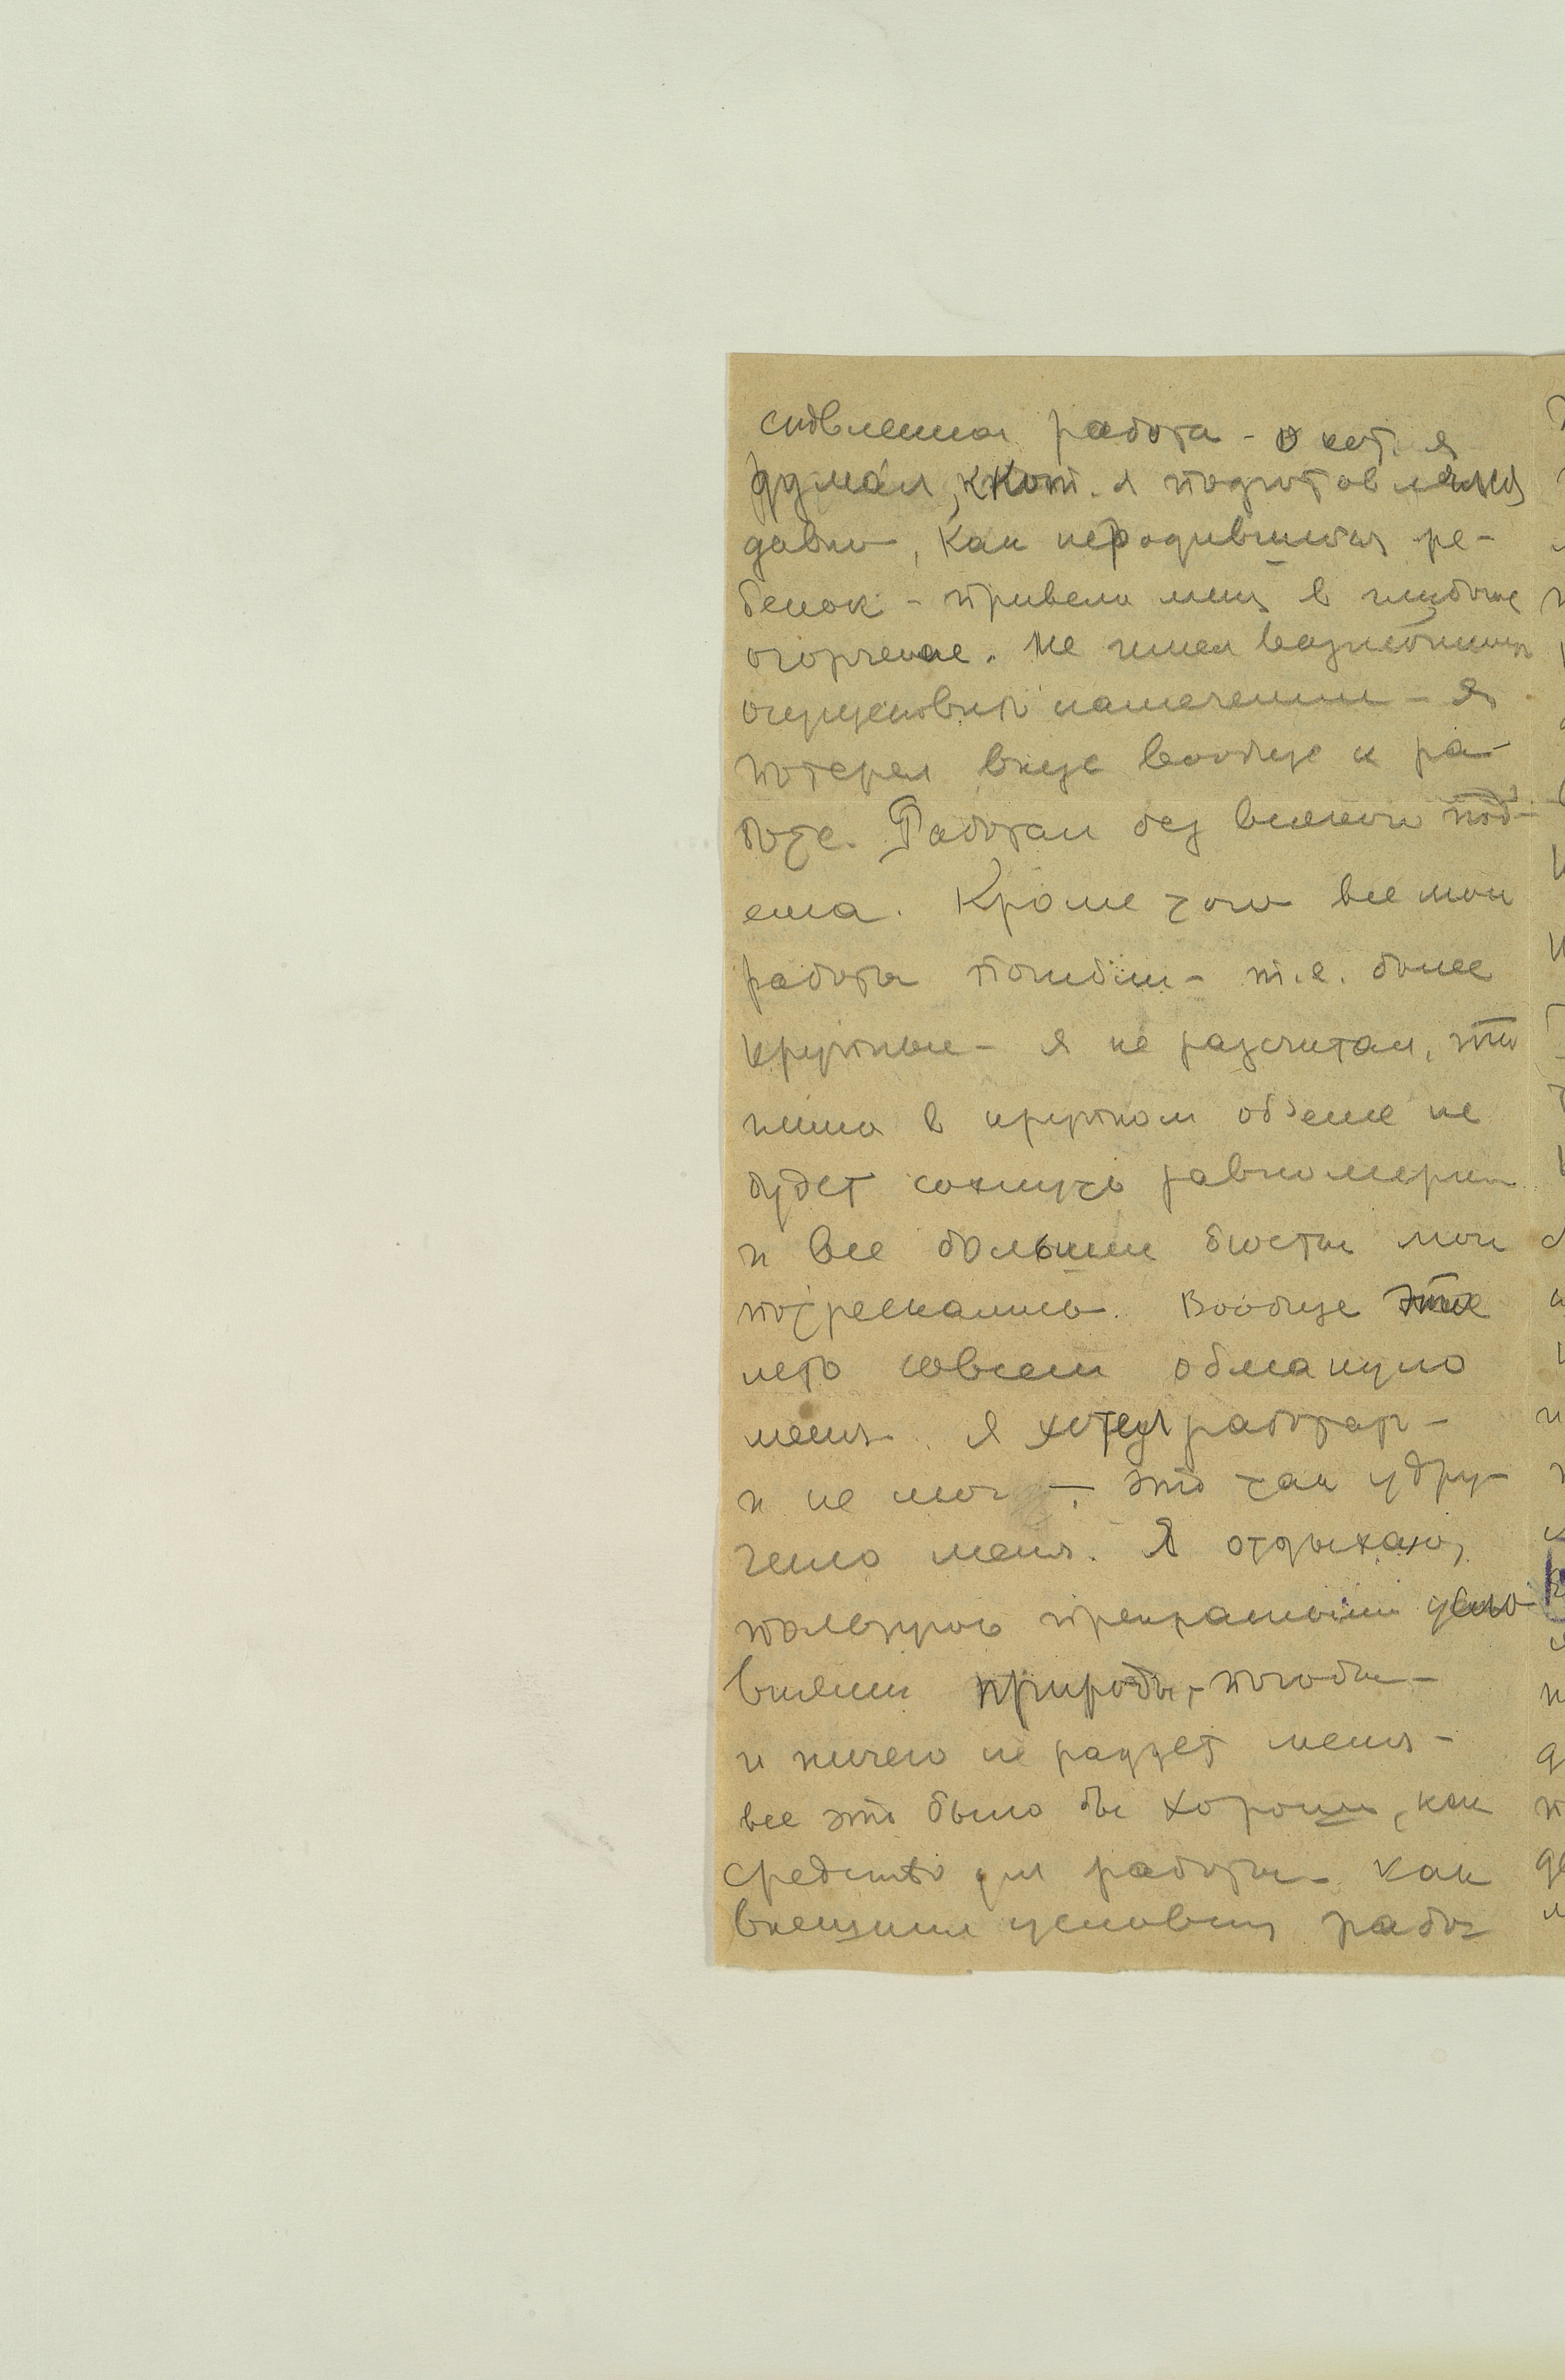 работа - о кот. я
думал, к кот. я подготовлялся
давно, как неродившийся ре-
бенок - привела меня в глубокое
огорчение. Не имея возможности
осуществить намечения - я
потерял вкус вообще к ра-
боте. Работал без всякого под-
ема. Кроме того все мои
работы погибли - т.е. более
крупные - я не расчитал, что
глина в крупном обьеме не
будет сохнуть равномерно
и все большие бюсты мои
потрескались. Вообще это
лето совсем обмануло
меня. Я хотел работать -
и не мог -, это так удру-
чило меня. Я отдыхаю,
пользуюсь прекрасными усло-
виями природы, погоды -
и ничего не радует меня -
все это было бы хорошо, как
средство для работы - как
внешния условия работ